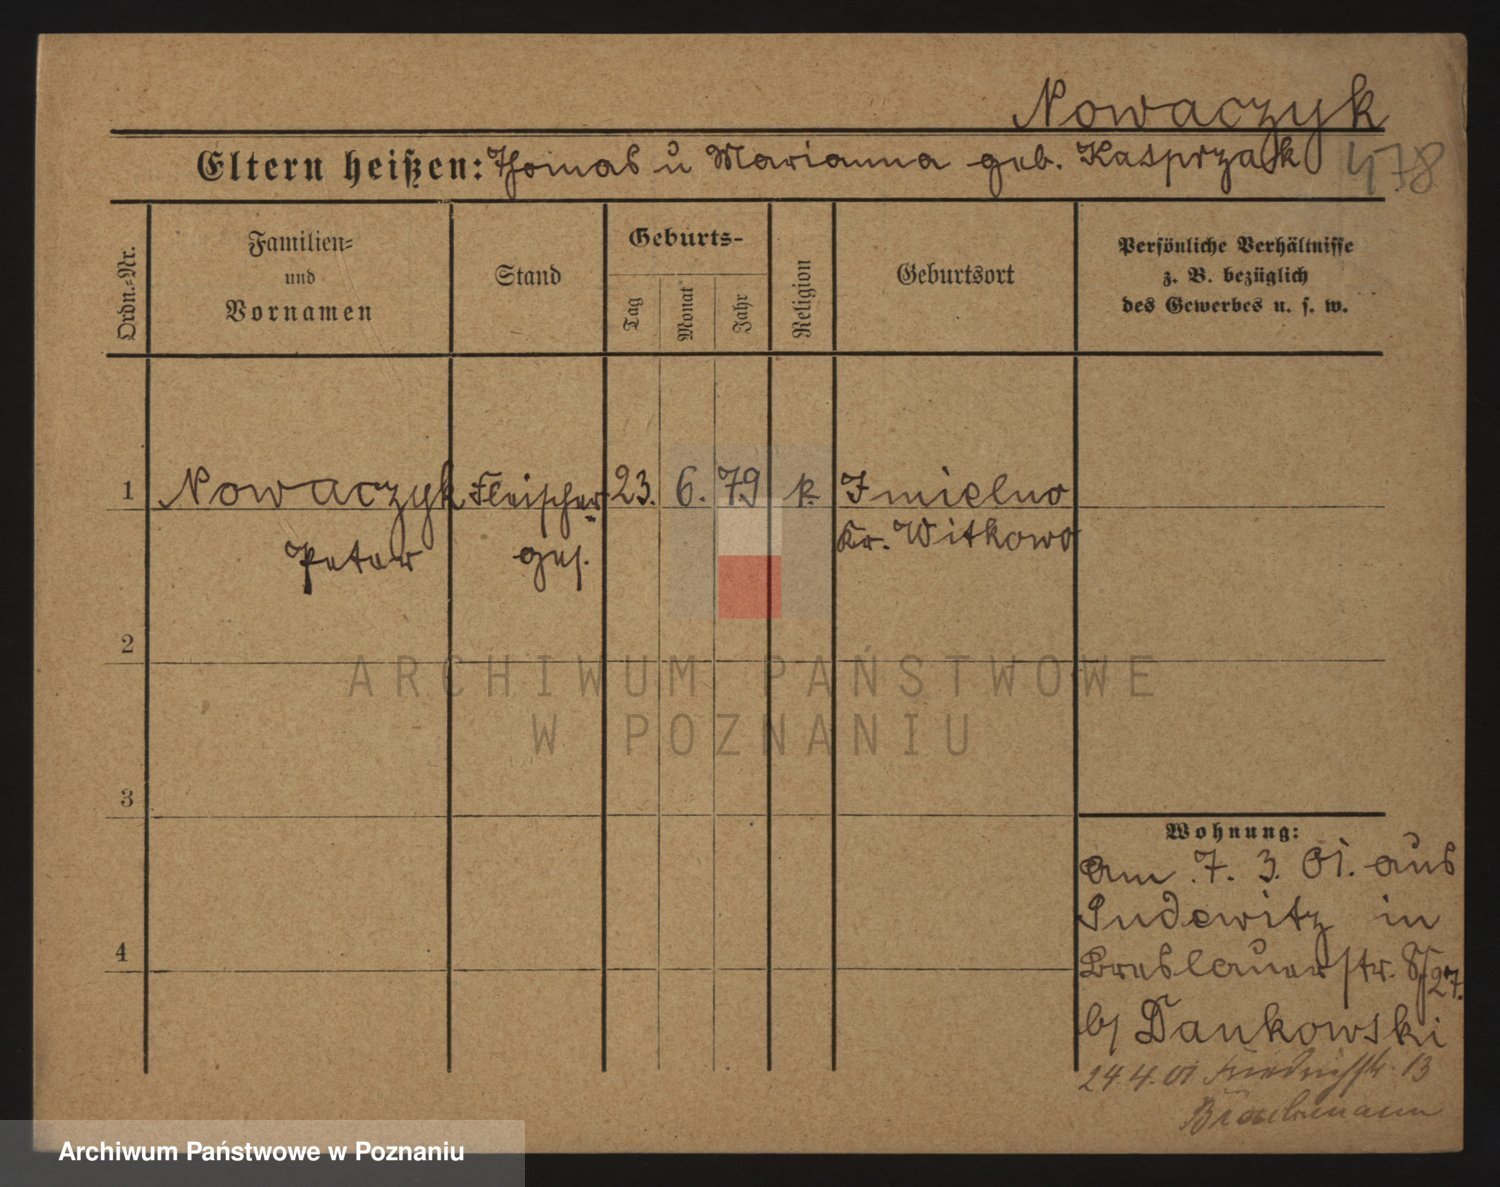 Nowaczyk
Eltern heißen: Thomas u Marianna geb. Kasprzak 478
Ordn.-Nr.
Familien-
und
Vornamen
Stand
Geburts-
Tag
Monat
Jahr
Religion
Geburtsort
Persönliche Verhältnisse
z. B. bezüglich
des Gewerbes u. s. w.
1 Nowaczyk Fleischer 23. 6. 79 k. Imielno
Peter ges. Kr. Witkowo
2
3
4
Wohnung:
am 7. 3. 01. aus
Pudewitz in
Breslauerstr. 27.
b/ Dankowski
24.4.01 Friedrichstr. 13
ARCHIWUM PAŃSTWOWE
W POZNANIU
Archiwum Państwowe w Poznaniu